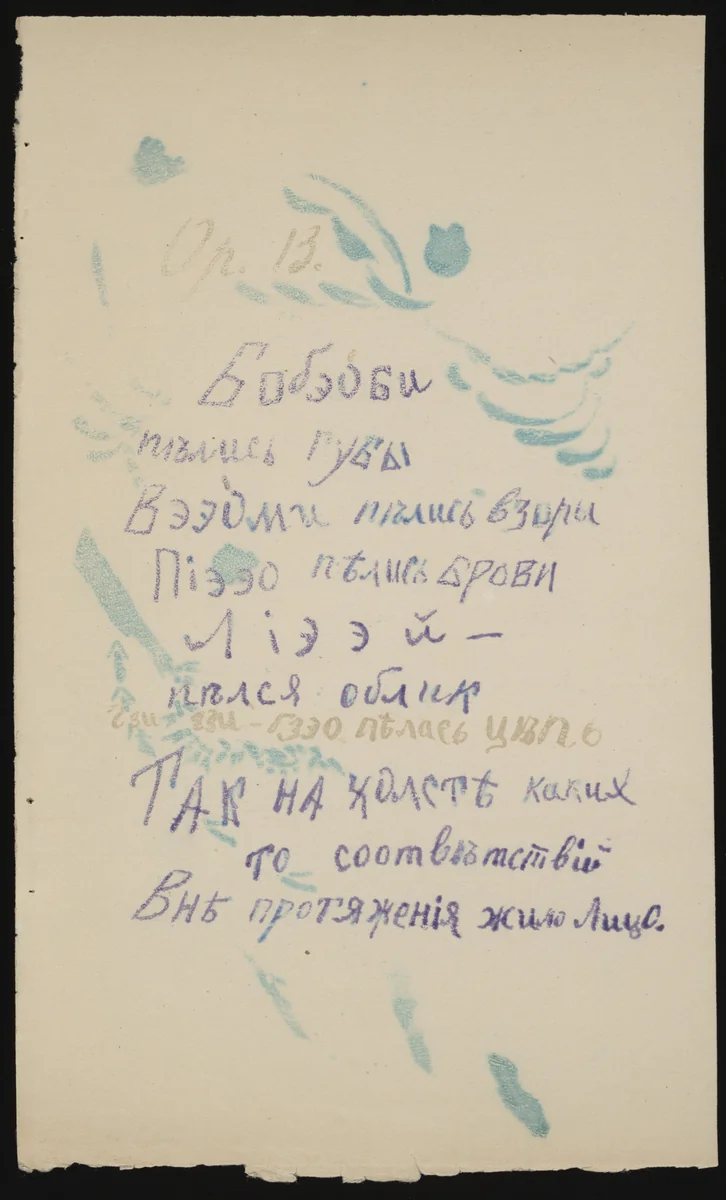 Ор. 13.
Бобэоби
пѣлись губы
Вээоми пѣлись взоры
Піээо пѣлись брови
Ліэээй –
пѣлся облик
Гзи-гзи-гзэо пѣлась цѣпь
ТАК НА ХОЛСТѢ каких
то соотвѣтствій
Внѣ протяженія жило Лицо.